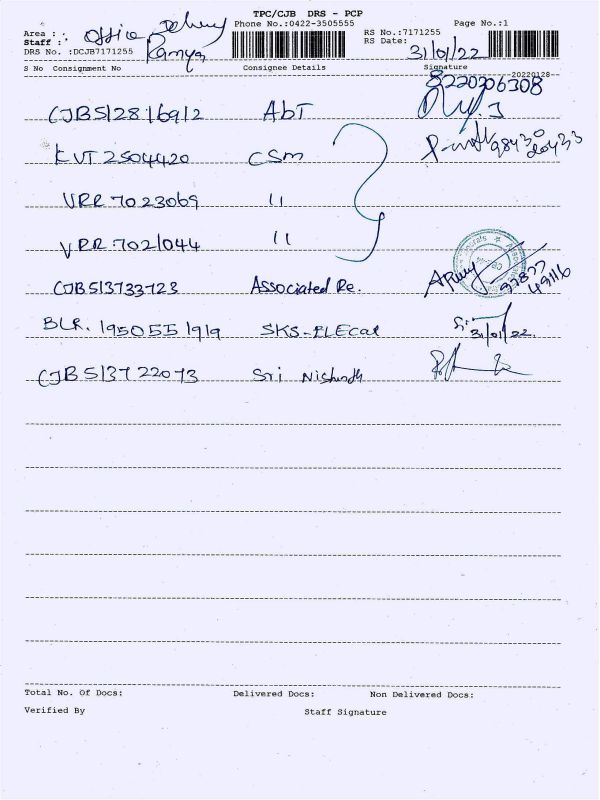 TPC/CJB DRS - PCP
Phone No.:0422-3505555
Page No.:1
Area : : Office Delivery
Staff : : Ramya
DRS No. :DCJB7171255
RS No.:7171255
RS Date: 31/01/22
S No Consignment No Consignee Details Signature
20220128
8220206308
CJB512816912 AbT
KVT 2504420 CSM
VRR 7023069 11
VRR 7021044 11
CJB513733723 Associated Re.
BLR. 1950551919 SKS-ELEcal
31/01/22.
CJB513722073 Sri
Total No. Of Docs: Delivered Docs: Non Delivered Docs:
Verified By Staff Signature